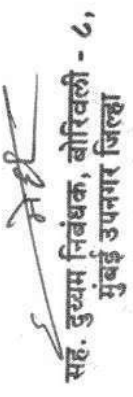 सह. दुय्यम निबंधक, बोरिवली - ८,
मुंबई उपनगर जिल्हा